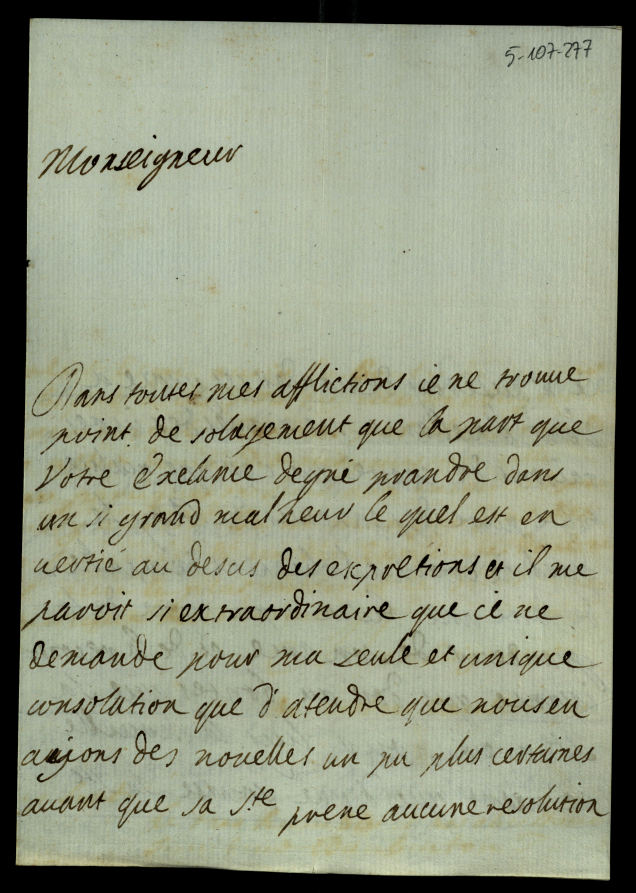 5-107-277
Monseigneur
Dans toutes mes afflictions ie ne trouue
point de solagement que la part que
Votre Exelance degne prandre dans
un si grand malheur le quel est en
uertié au desus des expretions et il me
paroit si extraordinaire que ie ne
demande pour ma seule et unique
consolation que d'atendre que nous en
aijons des nouelles un pu plus certaines
auant que sa Ste prene aucune resolution